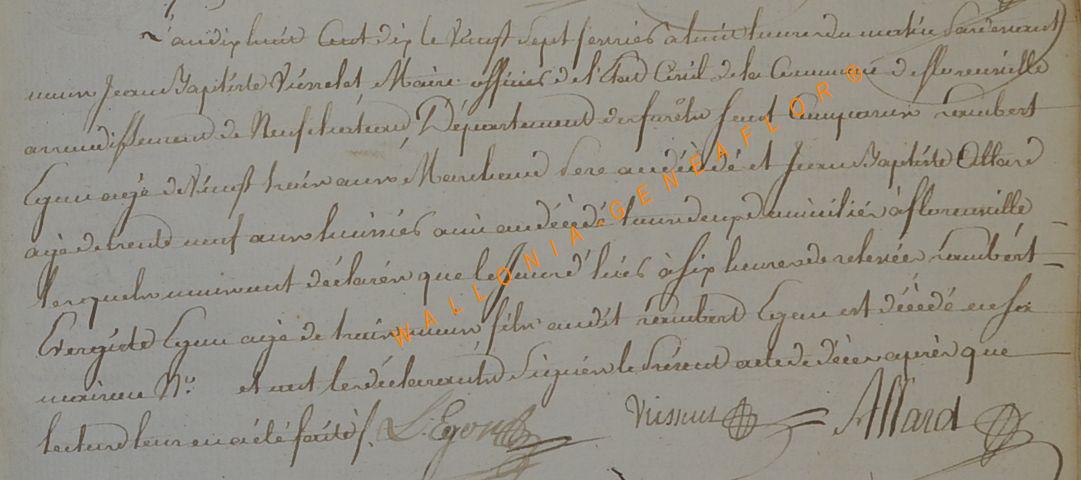 L'an dix huit Cent dix le Vingt Sept fevrier à huit heures du matin Pardevant
nous Jean Baptiste Maire officier de l'Etat Civil de la Commune de florenville
arrondissement de Neufchateau Département des forêts sont Comparus Lambert
Egon agé de Vingt trois ans Marchand Pere au décédé et Jean Baptiste Allard
agé de trente neuf ans huissier ami au décédé tous deux domiciliés à florenville
lesquels nous ont déclarés que le jour d'hier à Six heures de relevée Lambert
Egon agé de trois mois fils audit Lambert Egon est décédé en sa
maison N.º et ont les déclarants Signés le Présent acte de décès après que
lecture leur en a été faite /.
L. Egon Allard
WALLONIA-GENEAFLOR©